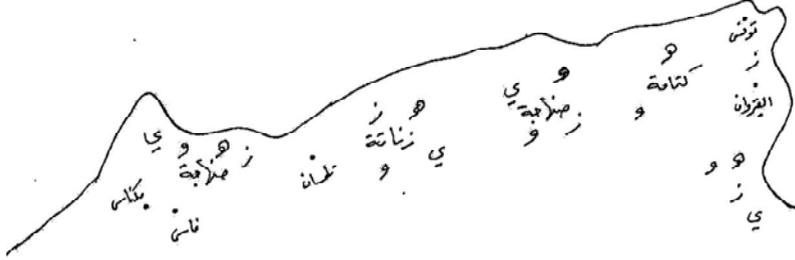 تونس
ز
القيروان
هـ
كتامة
و
و
ي
صنهاجة
ز
و
هـ
ز
زناتة
ي
و
تلمسان
ز
هـ
و
ي
صنهاجة
مكناس
فاس
هـ
و
ز
ي